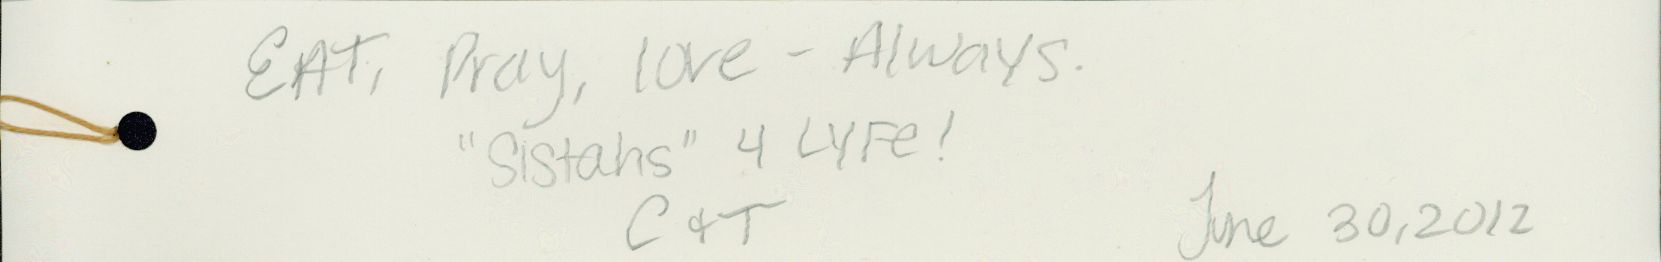 EAT, Pray, love - Always.
"Sistahs" 4 LYFe!
C & T
June 30, 2012